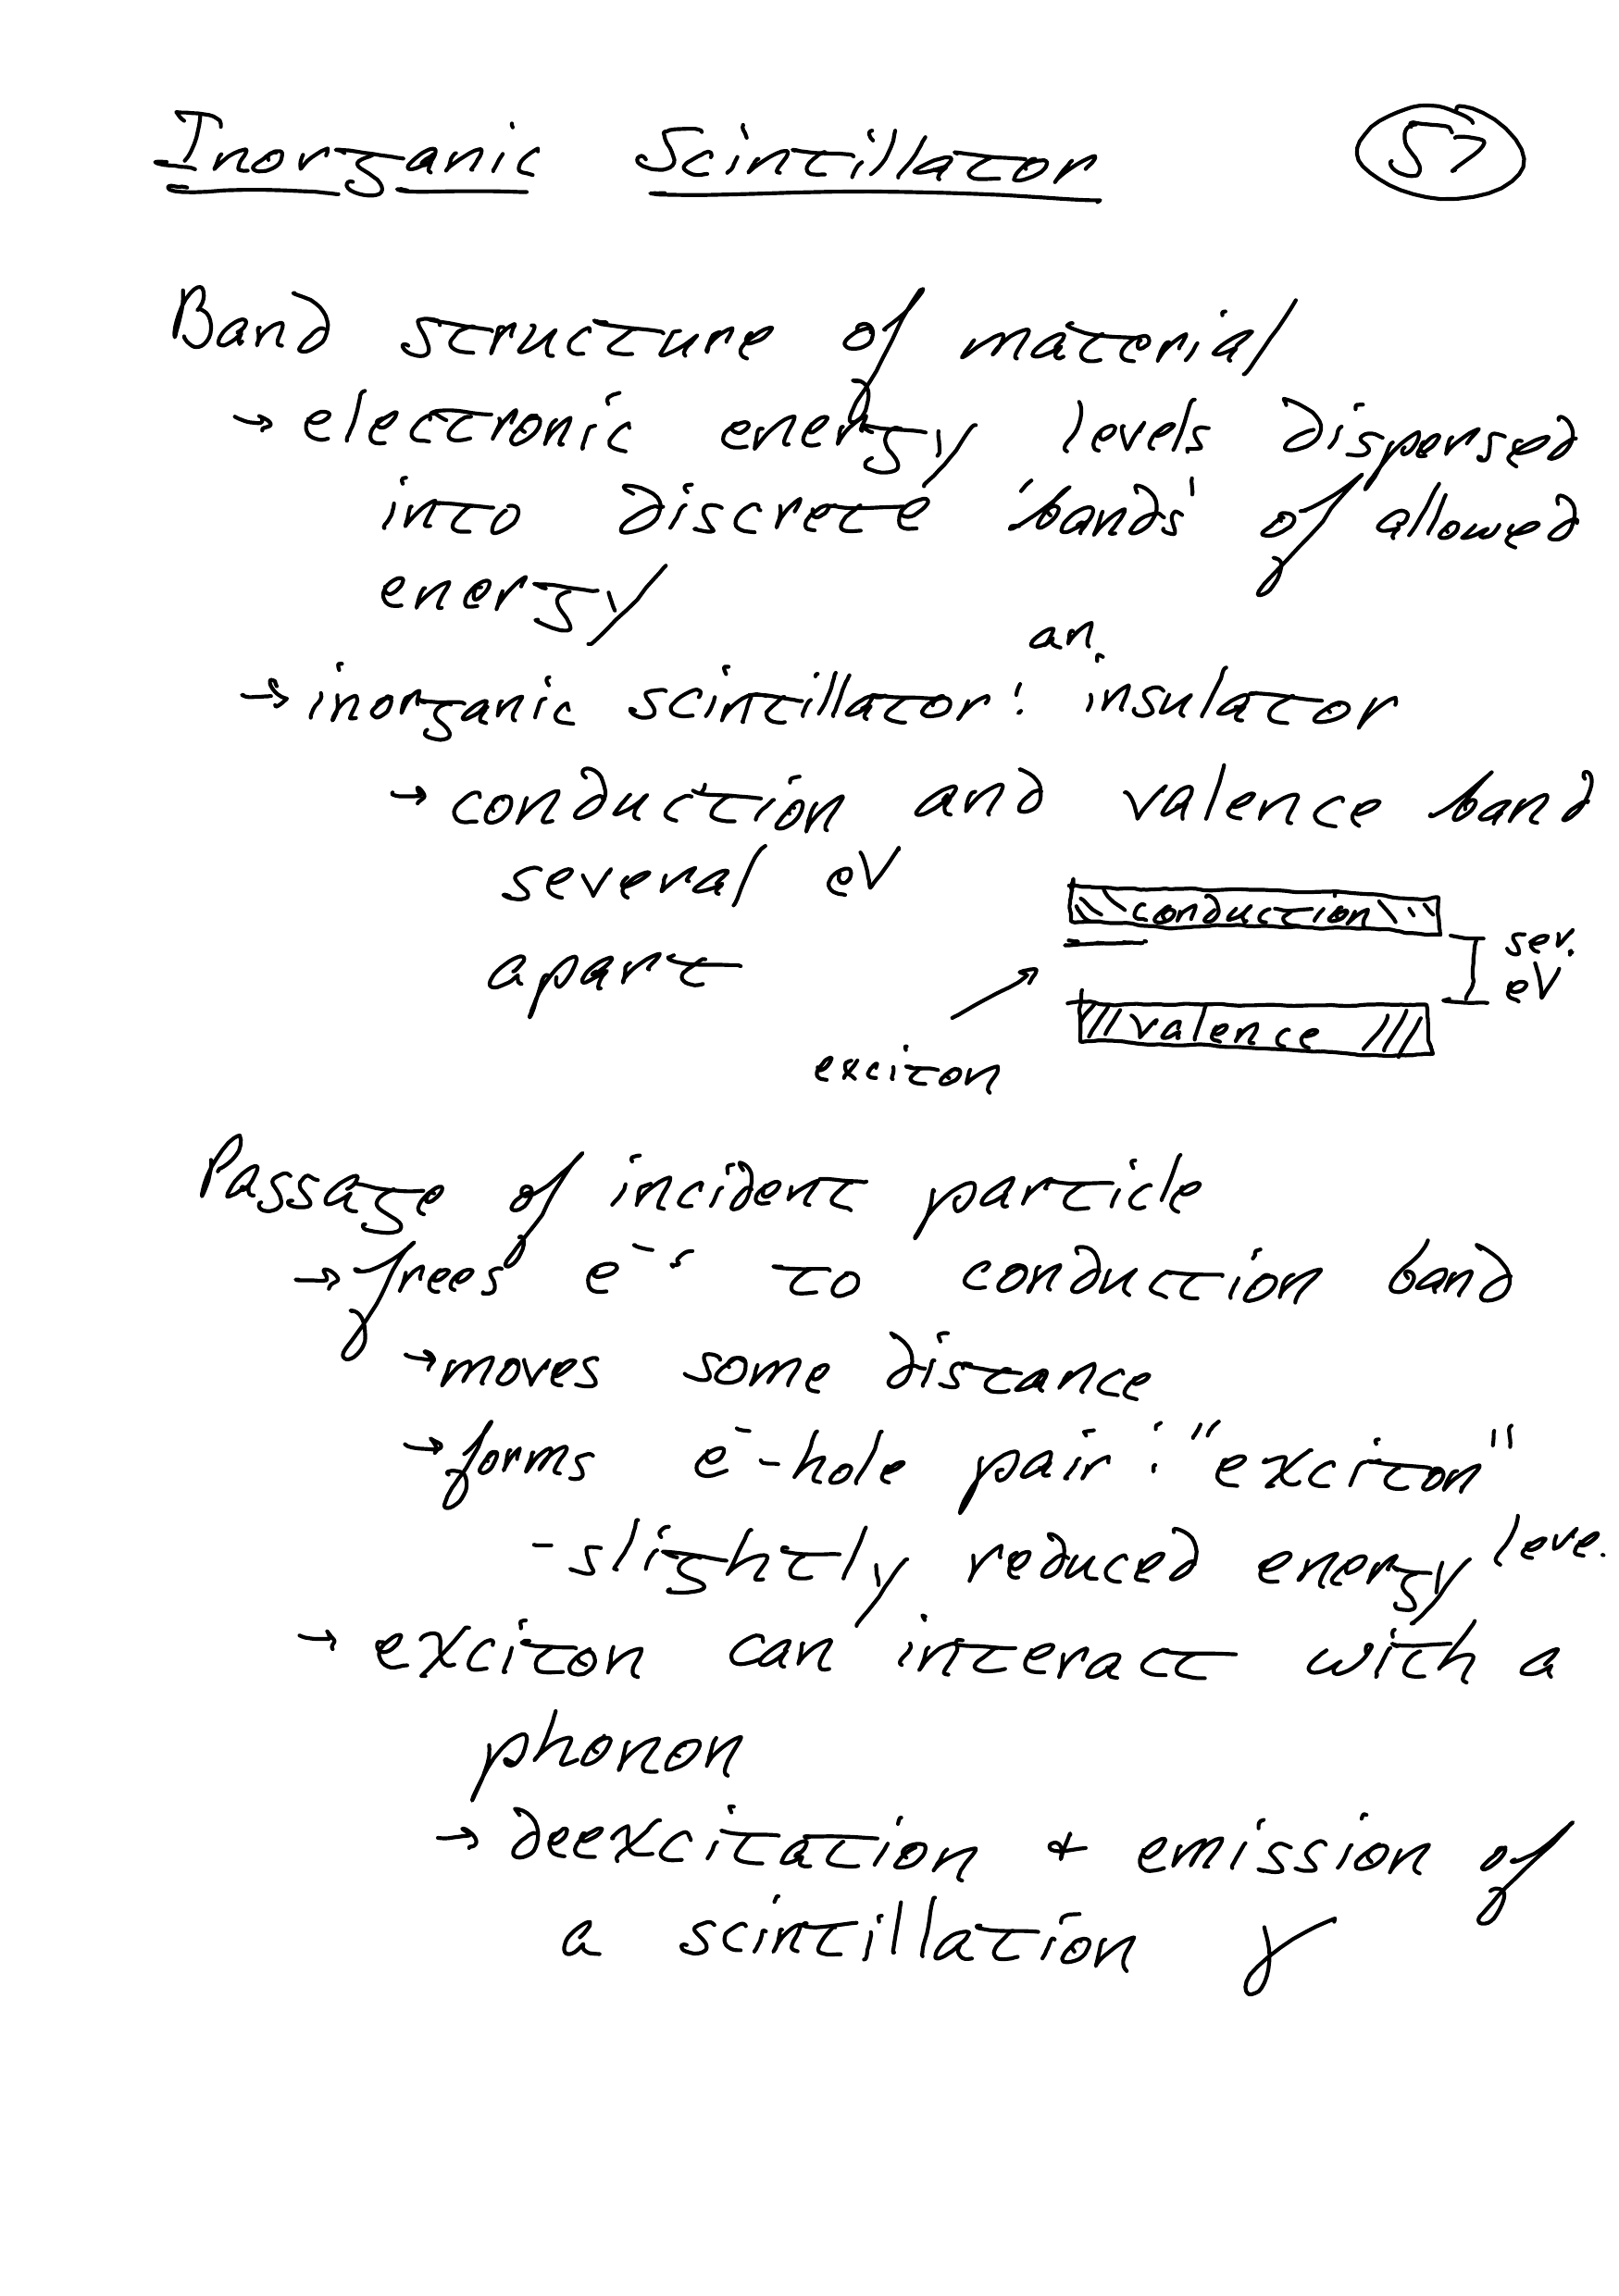 Inorganic Scintillator 57
Band structure of material
→ electronic energy levels dispersed
into discrete 'bands' of allowed
energy
an
→ inorganic scintillator: insulator
→ conduction and valence band
several eV
apart
conduction
sev.
eV
valence
exciton
Passage of incident particle
→ frees e⁻'s to conduction band
→ moves some distance
→ forms e⁻-hole pair: "exciton"
- slightly reduced energy leve.
→ exciton can interact with a
phonon
→ deexcitation + emission of
a scintillation γ